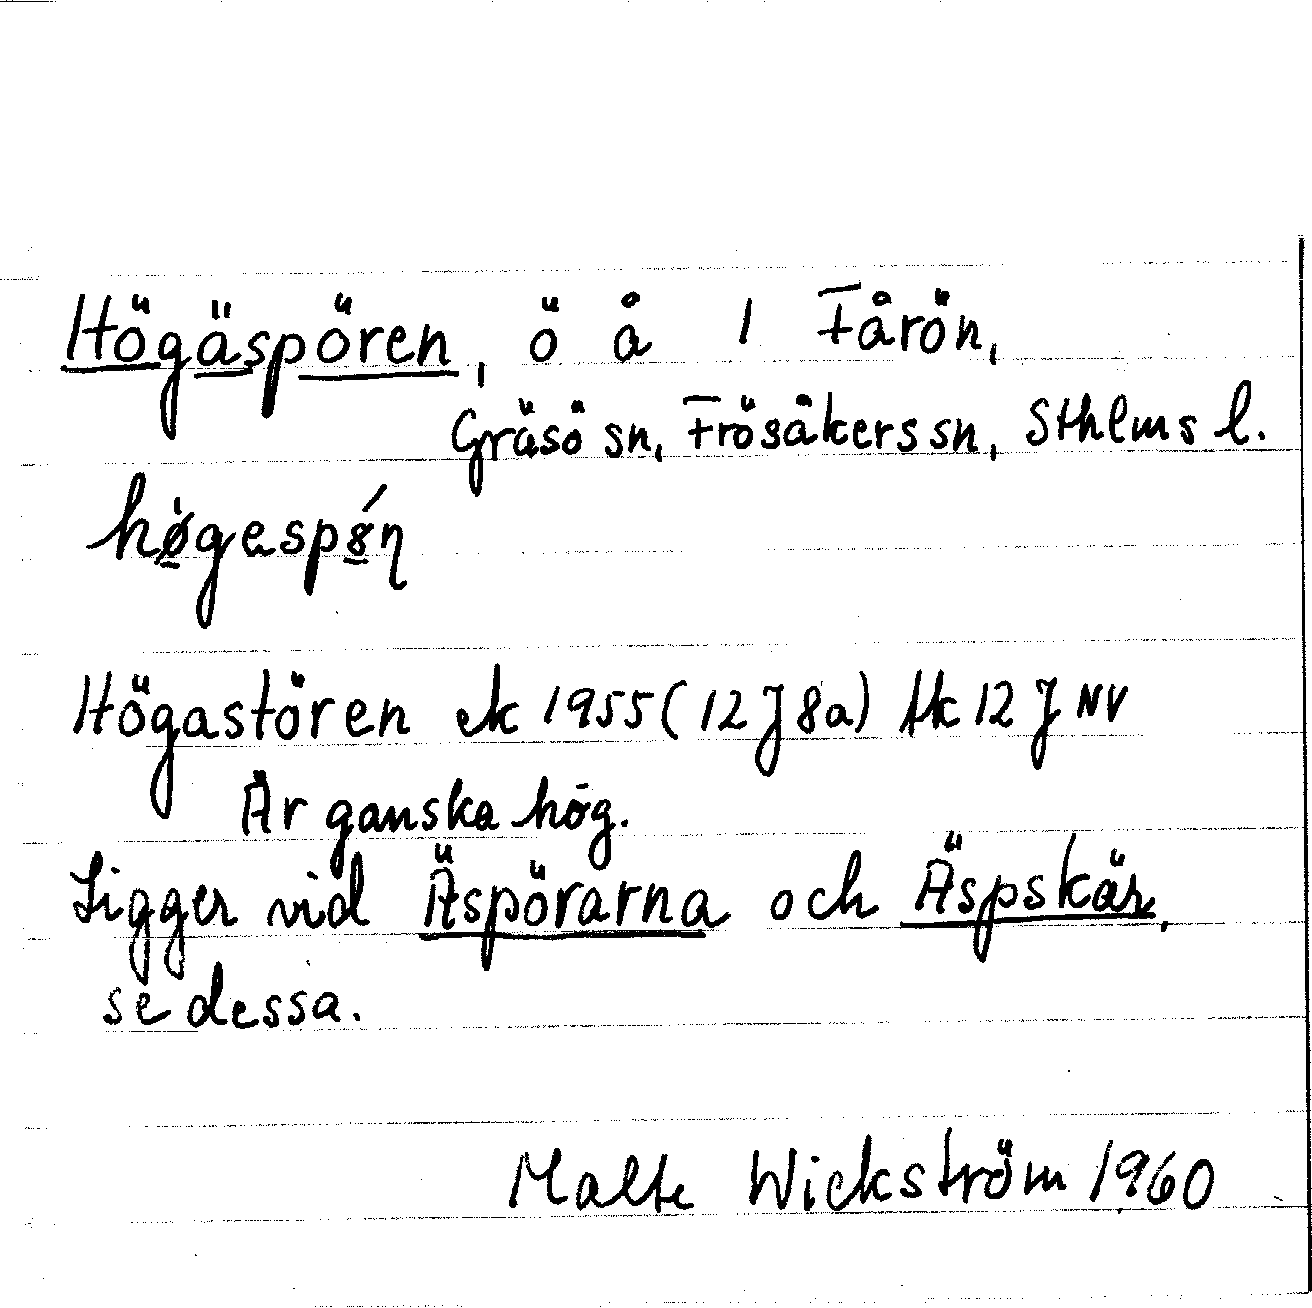 Högäspören, ö å 1 Fårön,
Gräsö sn, Frösåkers sn, Sthlms l.
hø̀gespǿn
Högastören ek 1955 (12 J 8a) tk 12 J NV
Är ganska hög.
Ligger vid Äspörarna och Äspskär,
se dessa.
Malte Wickström 1960